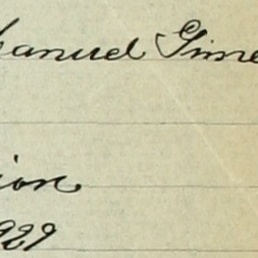 anuel Gime
ion
929